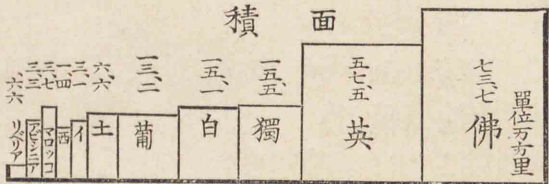 面積
單位万方里
七三、七
佛
五七、五
英
一五、五
獨
一五、一
白
一三、二
葡
六、六
土
三、一
イ
一、四
西
三、七
マロッコ
三、三
アビシニア
、六六
リベリア